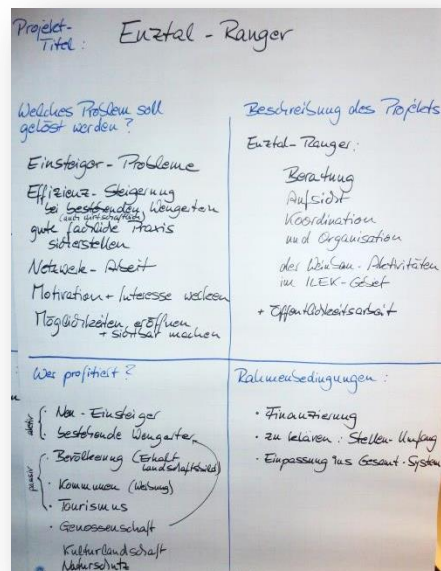 Projekt-
Titel:
Enztal - Ranger
Welches Problem soll
gelöst werden?
Einsteiger - Probleme
Effizienz - Steigerung
bei bestehenden Wengerten
(auch wirtschaftlich)
gute fachliche Praxis
sicherstellen
Netzwerk - Arbeit
Motivation + Interesse wecken
Möglichkeiten eröffnen
+ sichtbar machen
Beschreibung des Projekts
Enztal - Ranger:
Beratung
Aufsicht
Koordination
und Organisation
der Weinbau - Aktivitäten
im ILEK - Gebiet
+ Öffentlichkeitsarbeit
Wer profitiert?
aktiv
· Neu - Einsteiger
· bestehende Wengerter
passiv
· Bevölkerung (Erhalt
Landschaftsbild)
· Kommunen (Werbung)
· Tourismus
· Genossenschaft
Kulturlandschaft
Naturschutz
Rahmenbedingungen:
· Finanzierung
· zu klären: Stellen - Umfang
· Einpassung ins Gesamt - System